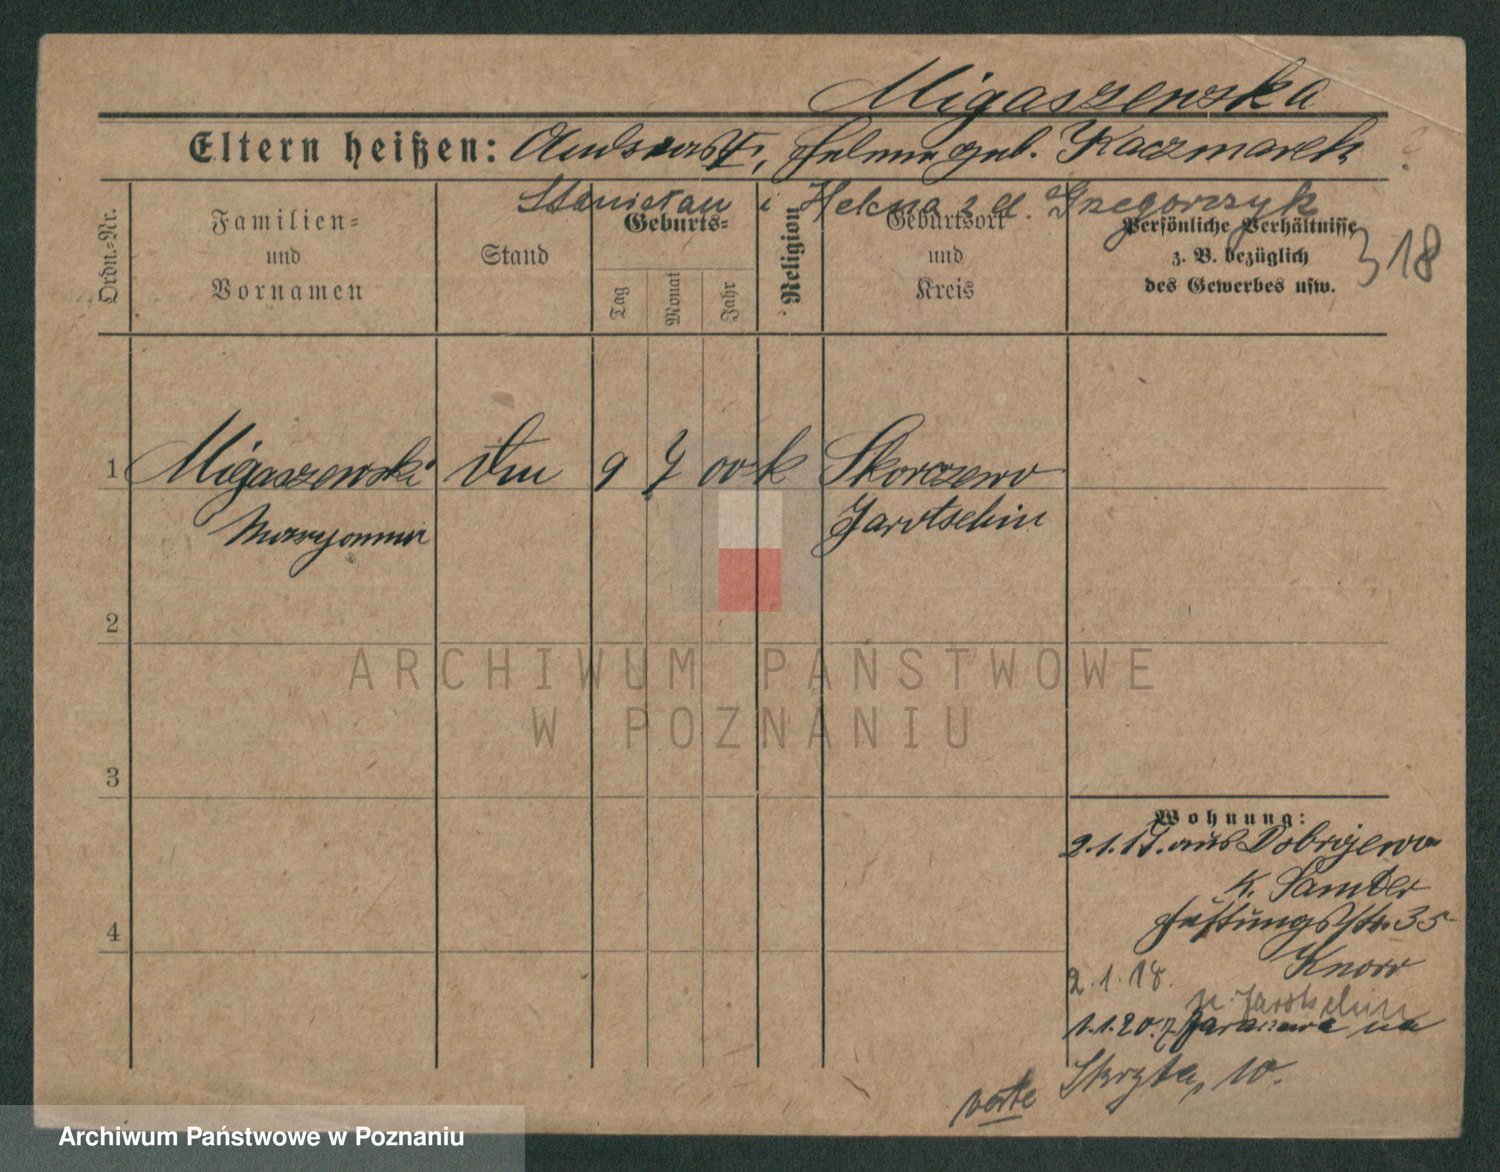 Migaszewska
Eltern heißen: Andreas †, Helene geb. Kaczmarek
Stanisław i Helena z d. Grzegorczyk
Ordn.-Nr.
Familien-
und
Vornamen
Stand
Geburts-
Tag
Monat
Jahr
Religion
Geburtsort
und
Kreis
Persönliche Verhältnisse
z. B. bezüglich
des Gewerbes usw.
318
1 Migaszewski 9 7 00 k Skorczewo
Maryanna Jarotschin
2
3
4
Wohnung:
2.1.17. aus Dobrojewo
K. Samter
35
Knorr
2.1.18.
n. Jarotschin
1.1.20. z Jaraczewa na
Skryta, 10.
verte
ARCHIWUM PAŃSTWOWE
W POZNANIU
Archiwum Państwowe w Poznaniu